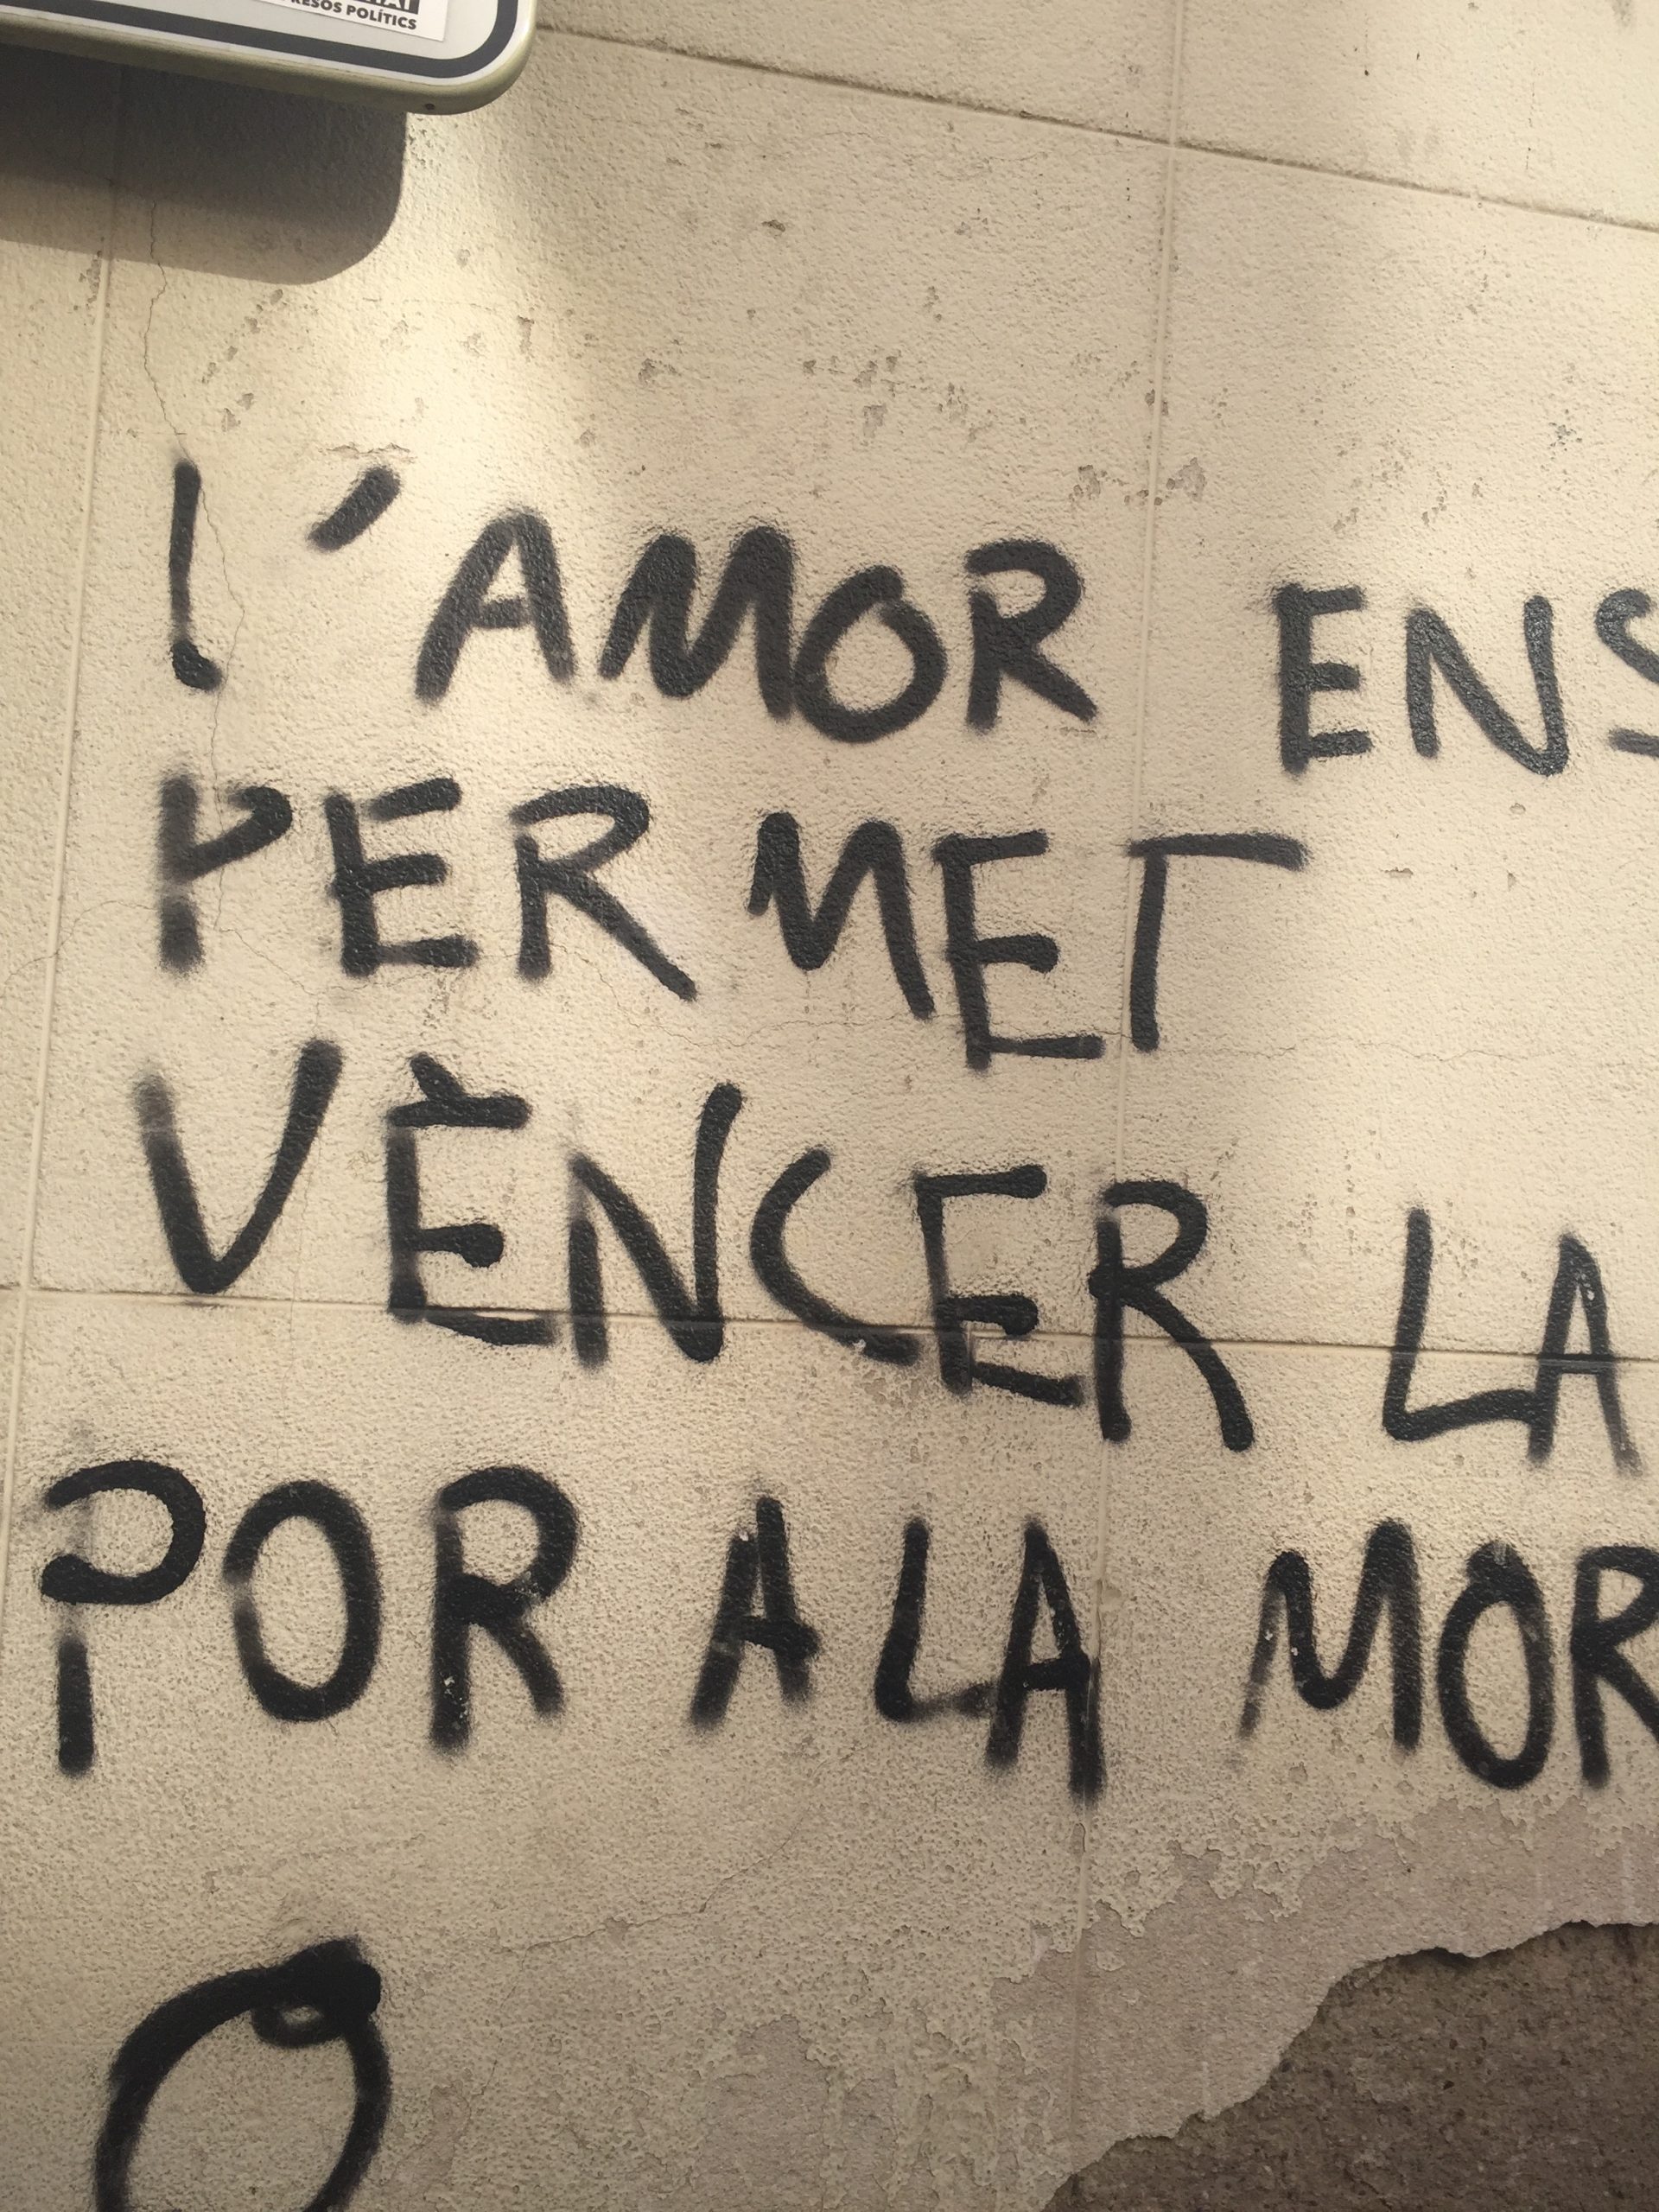 PRESOS POLÍTICS
L'AMOR ENS
PERMET
VÈNCER LA
POR A LA MOR